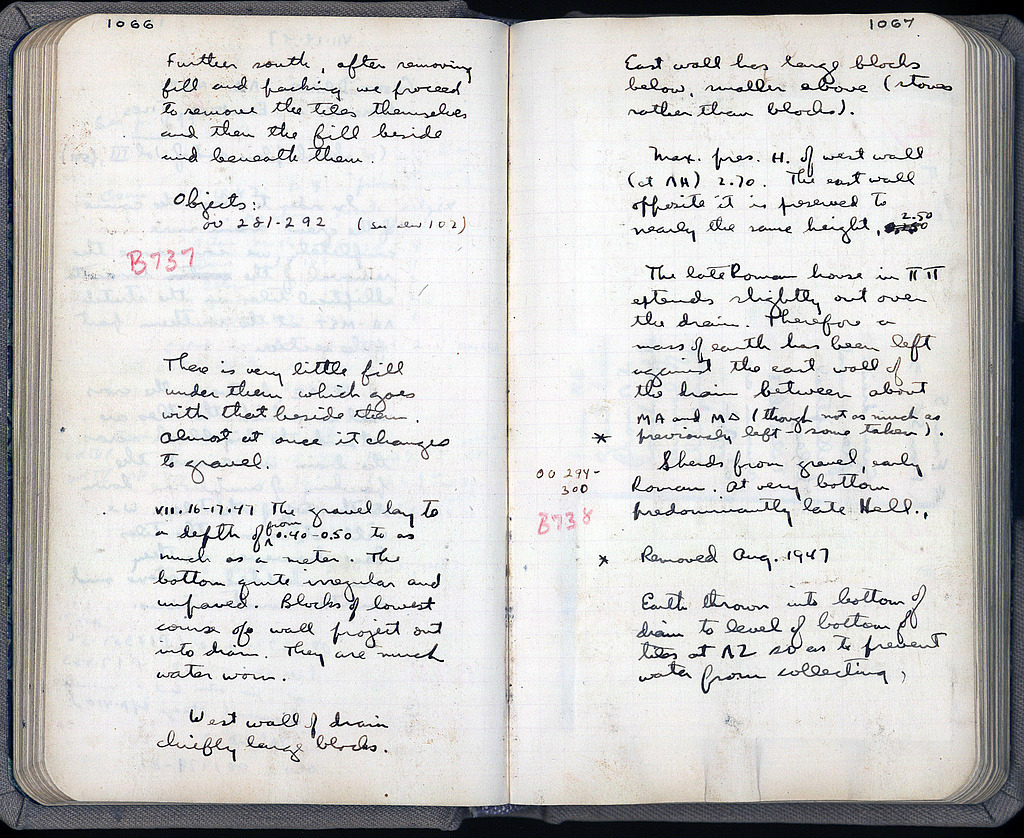 1066
Further south, after removing
fill and packing we proceed
to remove the tiles themselves
and then the fill beside
and beneath them.
Objects:
OO 281-292 (see den 102)
B737
There is very little fill
under them which goes
with that beside them.
Almost at once it changes
to gravel.
VII.16-17.47 The gravel lay to
a depth of from 0.40-0.50 to as
much as a meter. The
bottom quite irregular and
unpaved. Blocks of lowest
course of wall project out
into drain. They are much
water worn.
West wall of drain
chiefly large blocks.
1067
East wall has large blocks
below, smaller above (stones
rather than blocks).
Max. pres. H. of west wall
(at ΛΗ) 2.70. The east wall
opposite it is preserved to
nearly the same height, 2.50
The late Roman house in ΠΠ
extends slightly out over
the drain. Therefore a
mass of earth has been left
against the east wall of
the drain between about
ΜΑ and ΜΔ (though not as much as
* previously left - some taken).
Sherds from gravel, early
OO 294-
300
Roman. At very bottom
B738
predominantly late Hell.,
* Removed Aug. 1947
Earth thrown into bottom of
drain to level of bottom of
tiles at ΛΖ so as to prevent
water from collecting,